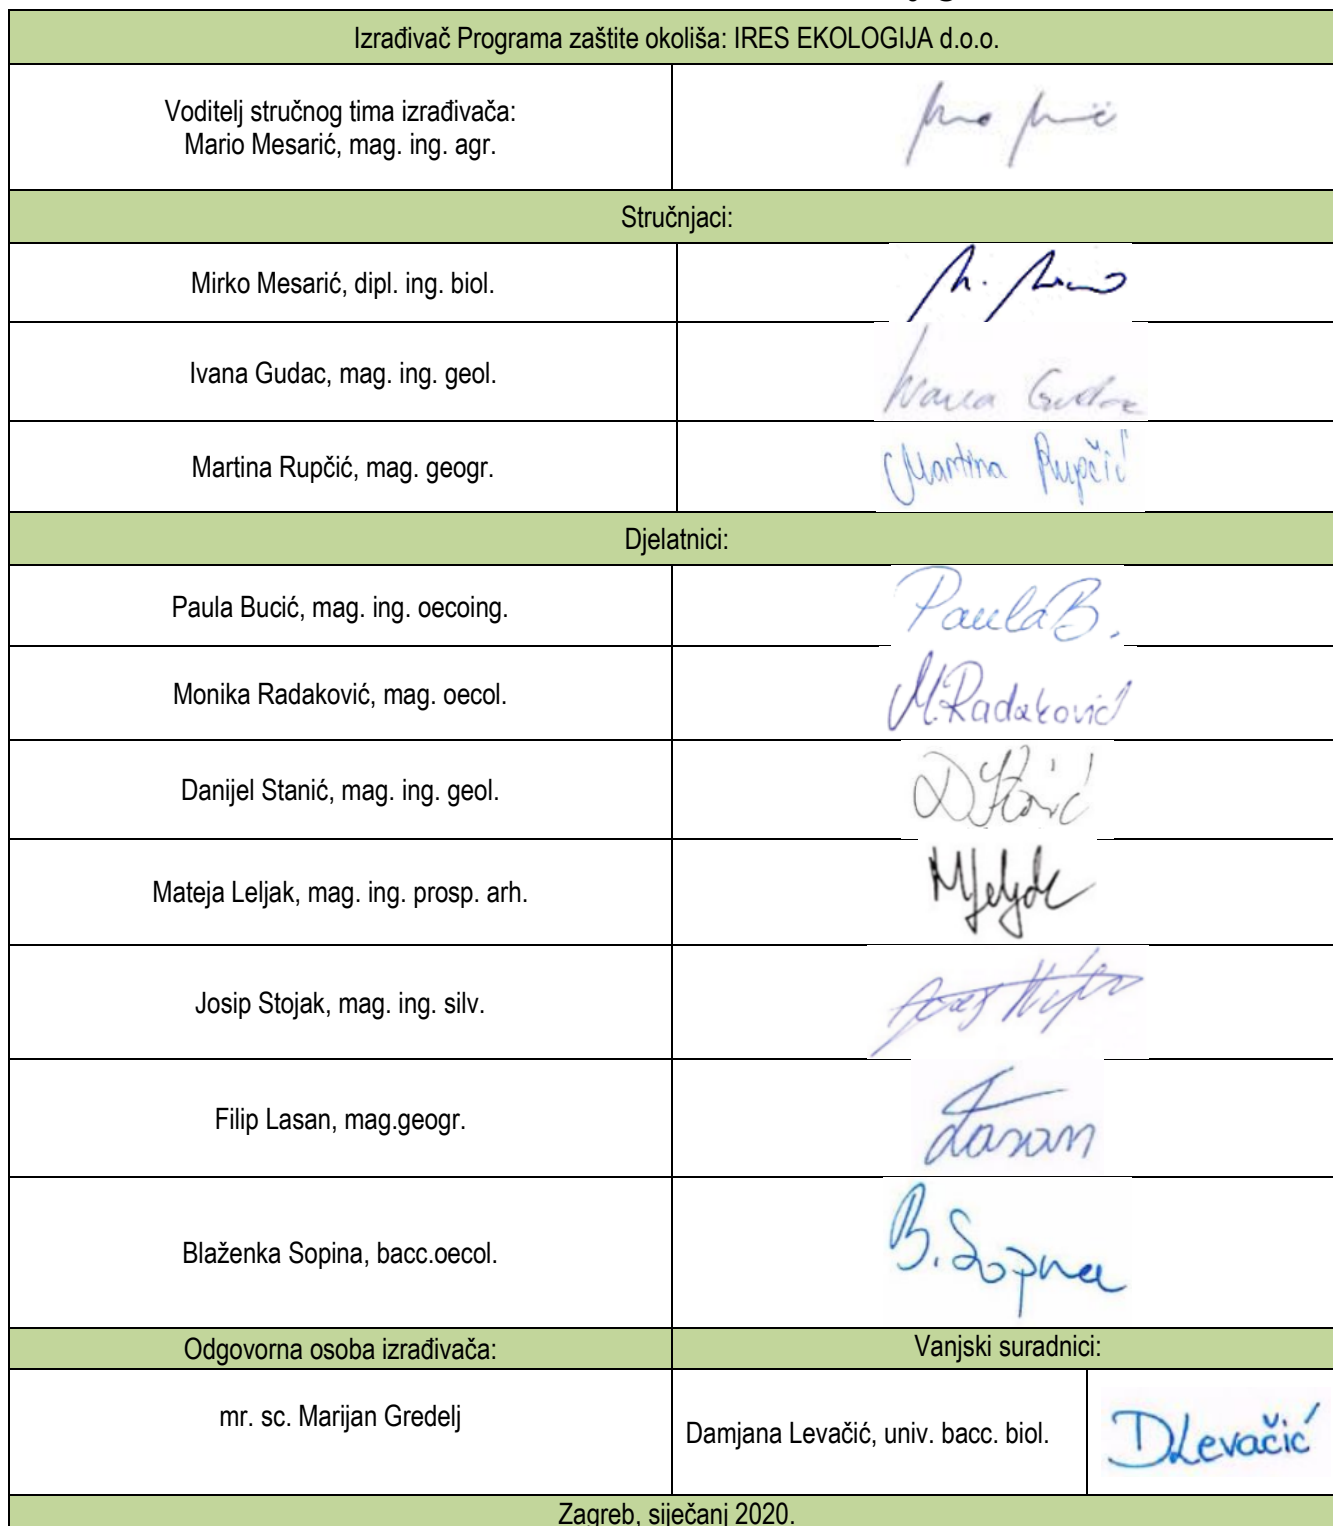 Izrađivač Programa zaštite okoliša: IRES EKOLOGIJA d.o.o.
Voditelj stručnog tima izrađivača:
Mario Mesarić, mag. ing. agr.
Stručnjaci:
Mirko Mesarić, dipl. ing. biol.
Ivana Gudac, mag. ing. geol.
Ivana Gudac
Martina Rupčić, mag. geogr.
Martina Rupčić
Djelatnici:
Paula Bucić, mag. ing. oecoing.
Paula B.
Monika Radaković, mag. oecol.
M. Radaković
Danijel Stanić, mag. ing. geol.
Mateja Leljak, mag. ing. prosp. arh.
Josip Stojak, mag. ing. silv.
Filip Lasan, mag.geogr.
Lasan
Blaženka Sopina, bacc.oecol.
B. Sopina
Odgovorna osoba izrađivača:
Vanjski suradnici:
mr. sc. Marijan Gredelj
Damjana Levačić, univ. bacc. biol.
DLevačić
Zagreb, siječanj 2020.